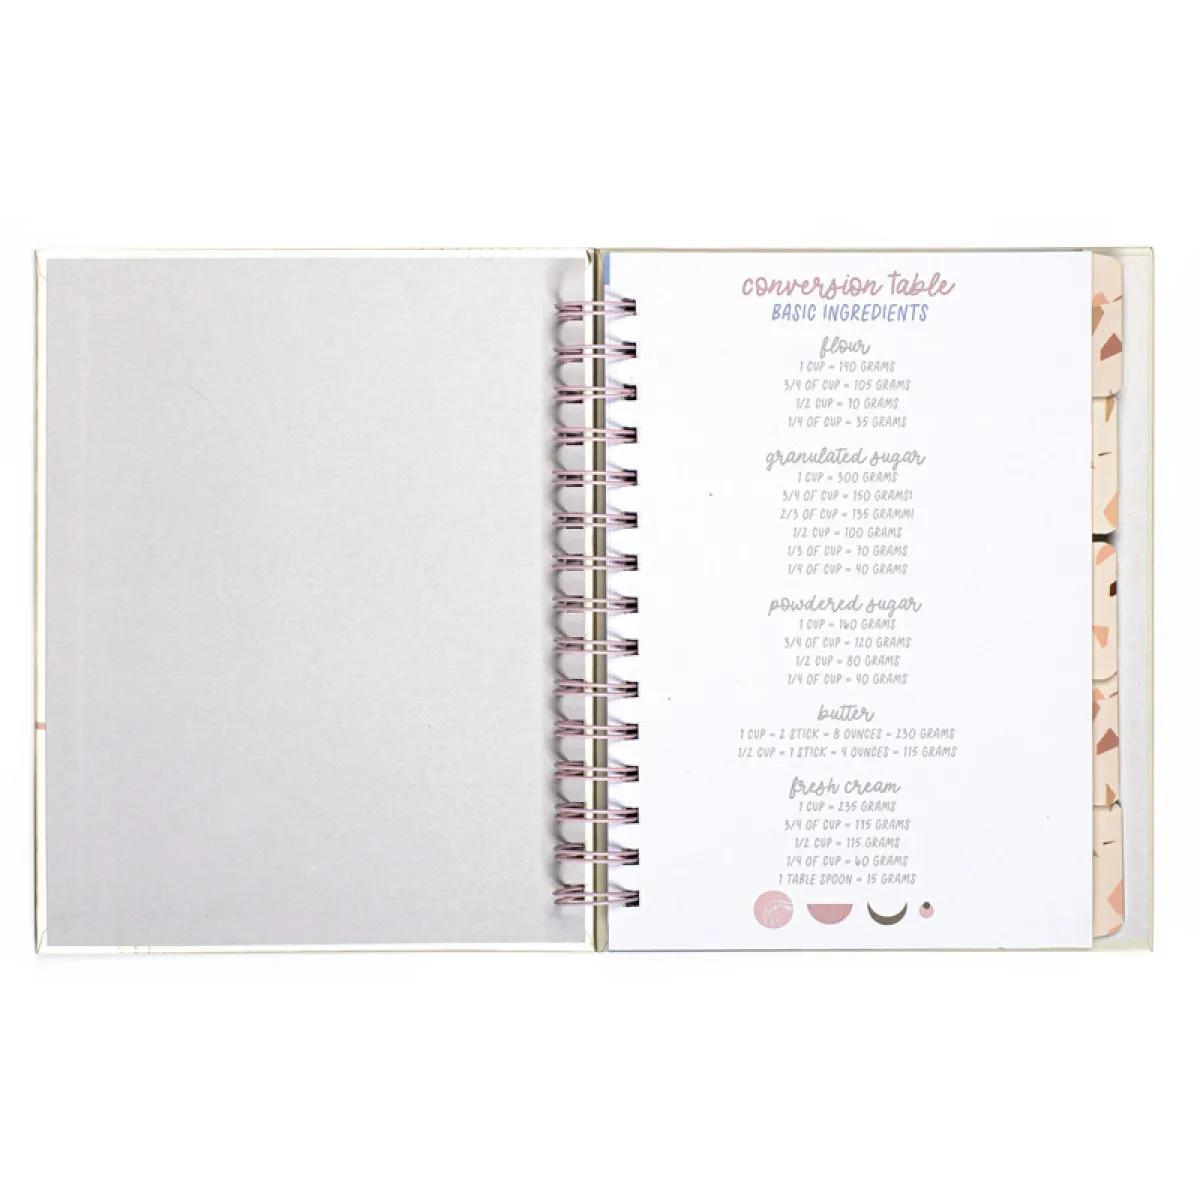 conversion table
BASIC INGREDIENTS
flour
1 CUP = 140 GRAMS
3/4 OF CUP = 105 GRAMS
1/2 CUP = 70 GRAMS
1/4 OF CUP = 35 GRAMS
granulated sugar
1 CUP = 300 GRAMS
3/4 OF CUP = 150 GRAMS1
2/3 OF CUP = 135 GRAMM1
1/2 CUP = 100 GRAMS
1/3 OF CUP = 70 GRAMS
1/4 OF CUP = 40 GRAMS
powdered sugar
1 CUP = 160 GRAMS
3/4 OF CUP = 120 GRAMS
1/2 CUP = 80 GRAMS
1/4 OF CUP = 40 GRAMS
butter
1 CUP = 2 STICK = 8 OUNCES = 230 GRAMS
1/2 CUP = 1 STICK = 4 OUNCES = 115 GRAMS
fresh cream
1 CUP = 235 GRAMS
3/4 OF CUP = 175 GRAMS
1/2 CUP = 115 GRAMS
1/4 OF CUP = 60 GRAMS
1 TABLE SPOON = 15 GRAMS